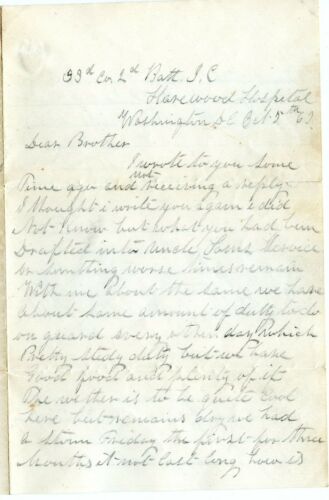 33d Co 2d Batt I.C
Harewood Hospital
Washington DC Oct 5th 63
Dear Brother
I wrote to you some
Time ago and not receiving a reply
I thought i write you again I did
Not Know but what you had bin
Drafted into Uncle Sams Service
or Somthing worse times remain
With me about the same we have
about same amount of duty to do
on guard every other day Which
Pretty Stedy duty but we have
Good food and plenty of it
The wether is to be quite cool
here but remains dry we had
a storm Friday the first for three
Months it not last long how is